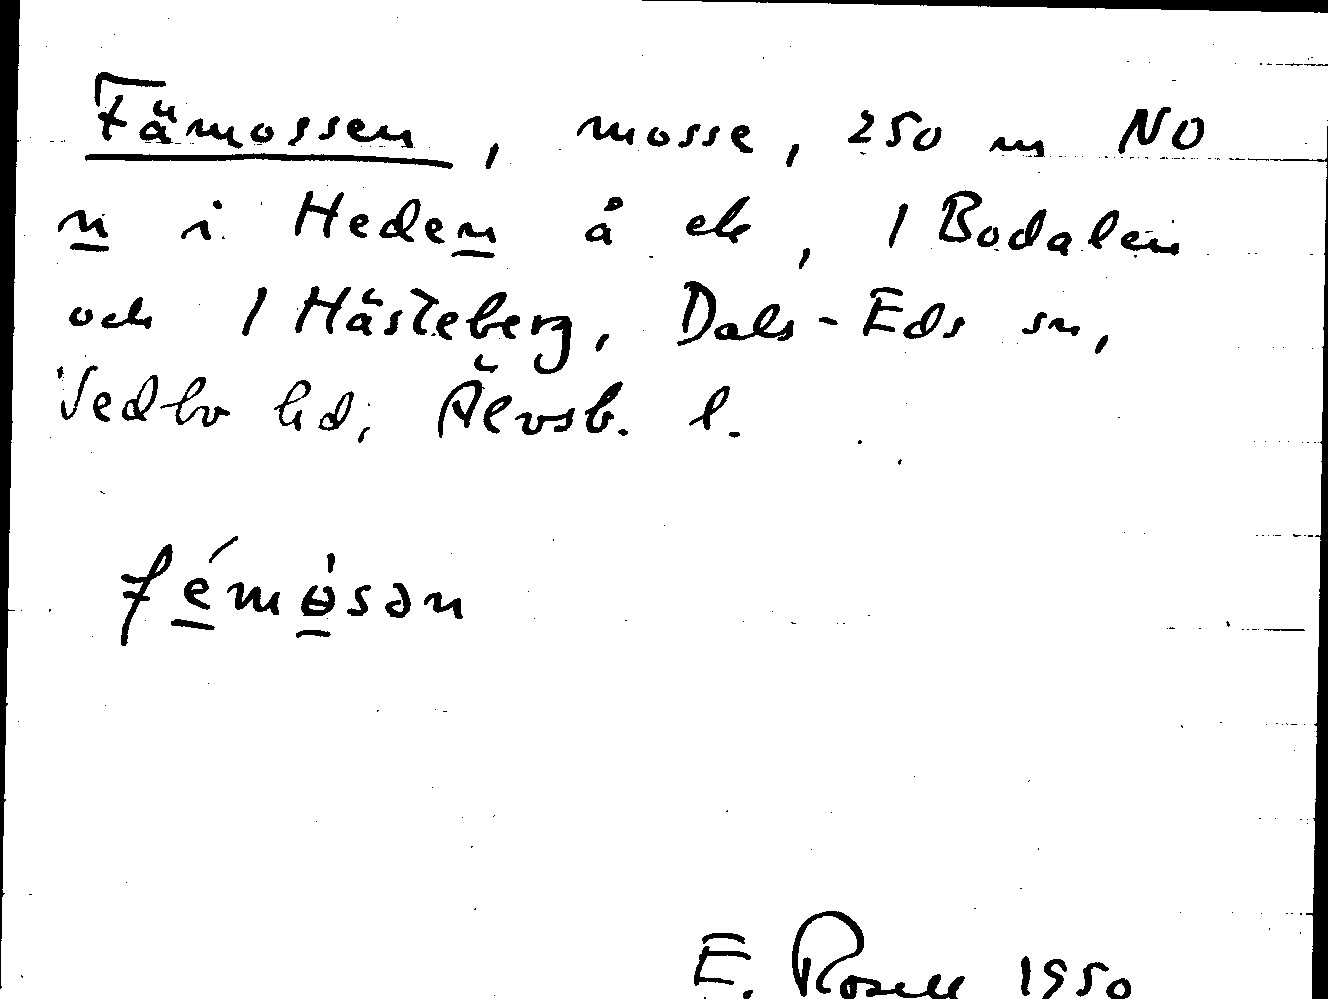 Fämossen, mosse, 250 m NO
n i Heden å ek, 1 Bodalen
och 1 Hästeberg, Dals-Eds sn,
Vedbo hd, Älvsb. l.
fémòsən
E. Rosell 1950